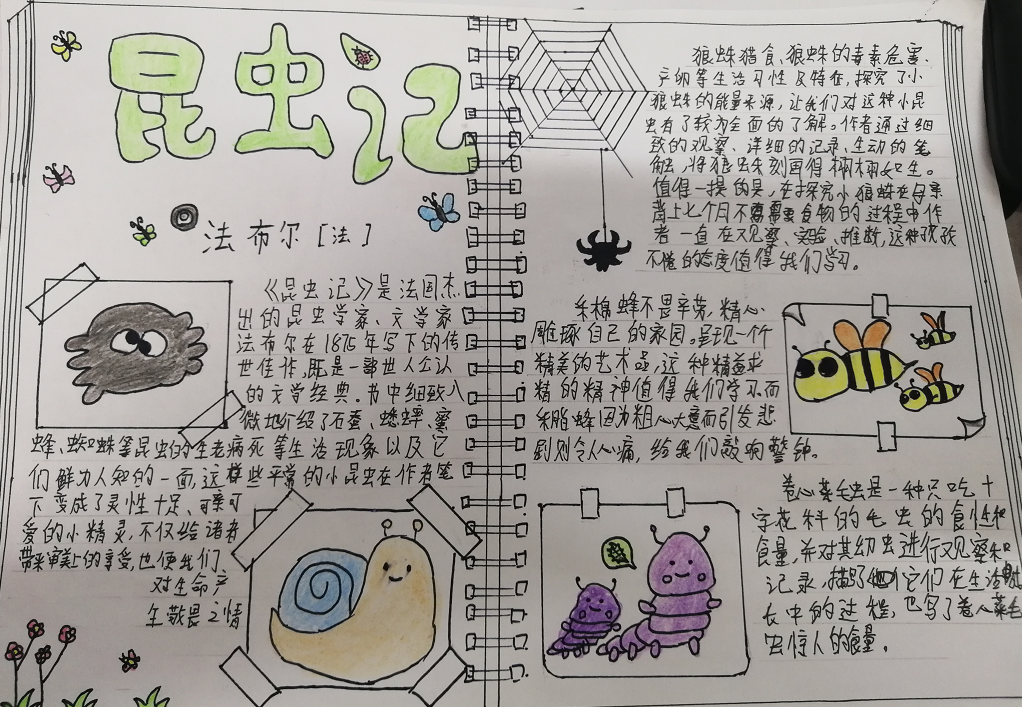 昆虫记
法布尔[法]
《昆虫记》是法国杰
出的昆虫学家、文学家
法布尔在1875年写下的传
世佳作,既是一部世人公认
的文学经典。书中细致入
微地介绍了石蚕、蟋蟀、蜜
蜂、蜘蛛等昆虫的生老病死等生活现象以及它
们鲜为人知的一面,这样些平常的小昆虫在作者笔
下变成了灵性十足、可亲可
爱的小精灵,不仅给读者
带来审美上的享受,也使我们、
对生命产
生敬畏之情
狼蛛猎食、狼蛛的毒素危害、
产卵等生活习性及特征,探究了小
狼蛛的能量来源,让我们对这种小昆
虫有了较为全面的了解。作者通过细
致的观察、详细的记录、生动的笔
触,将狼蛛刻画得栩栩如生。
值得一提的是,在探究小狼蛛在母亲
背上七个月不需要食物的过程中作
者一直在观察、实验、推敲,这种孜孜
不倦的态度值得我们学习。
采棉蜂不畏辛劳,精心
雕琢自己的家园。呈现一个
精美的艺术品,这种精益求
精的精神值得我们学习.而
采脂蜂因为粗心大意而引发悲
剧则令人心痛,给我们敲响警钟。
卷心菜毛虫是一种只吃十
字花科的毛虫的食性和
食量,并对其幼虫进行观察和
记录,描写它们在生活
长中的过程,也写了卷心菜毛
虫惊人的食量。